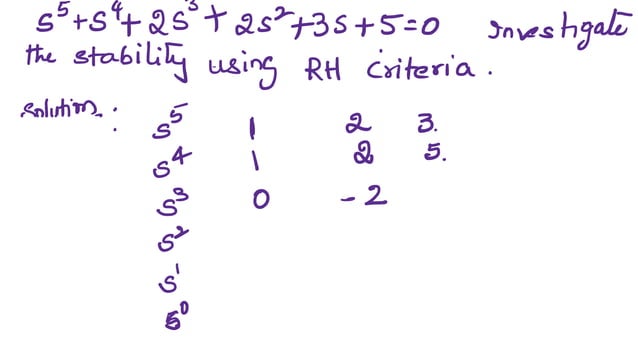 s⁵+s⁴+2s³+2s²+3s+5=0 Investigate
the stability using RH Criteria.
Solution:
s⁵ 1 2 3.
s⁴ 1 2 5.
s³ 0 -2
s²
s¹
s⁰